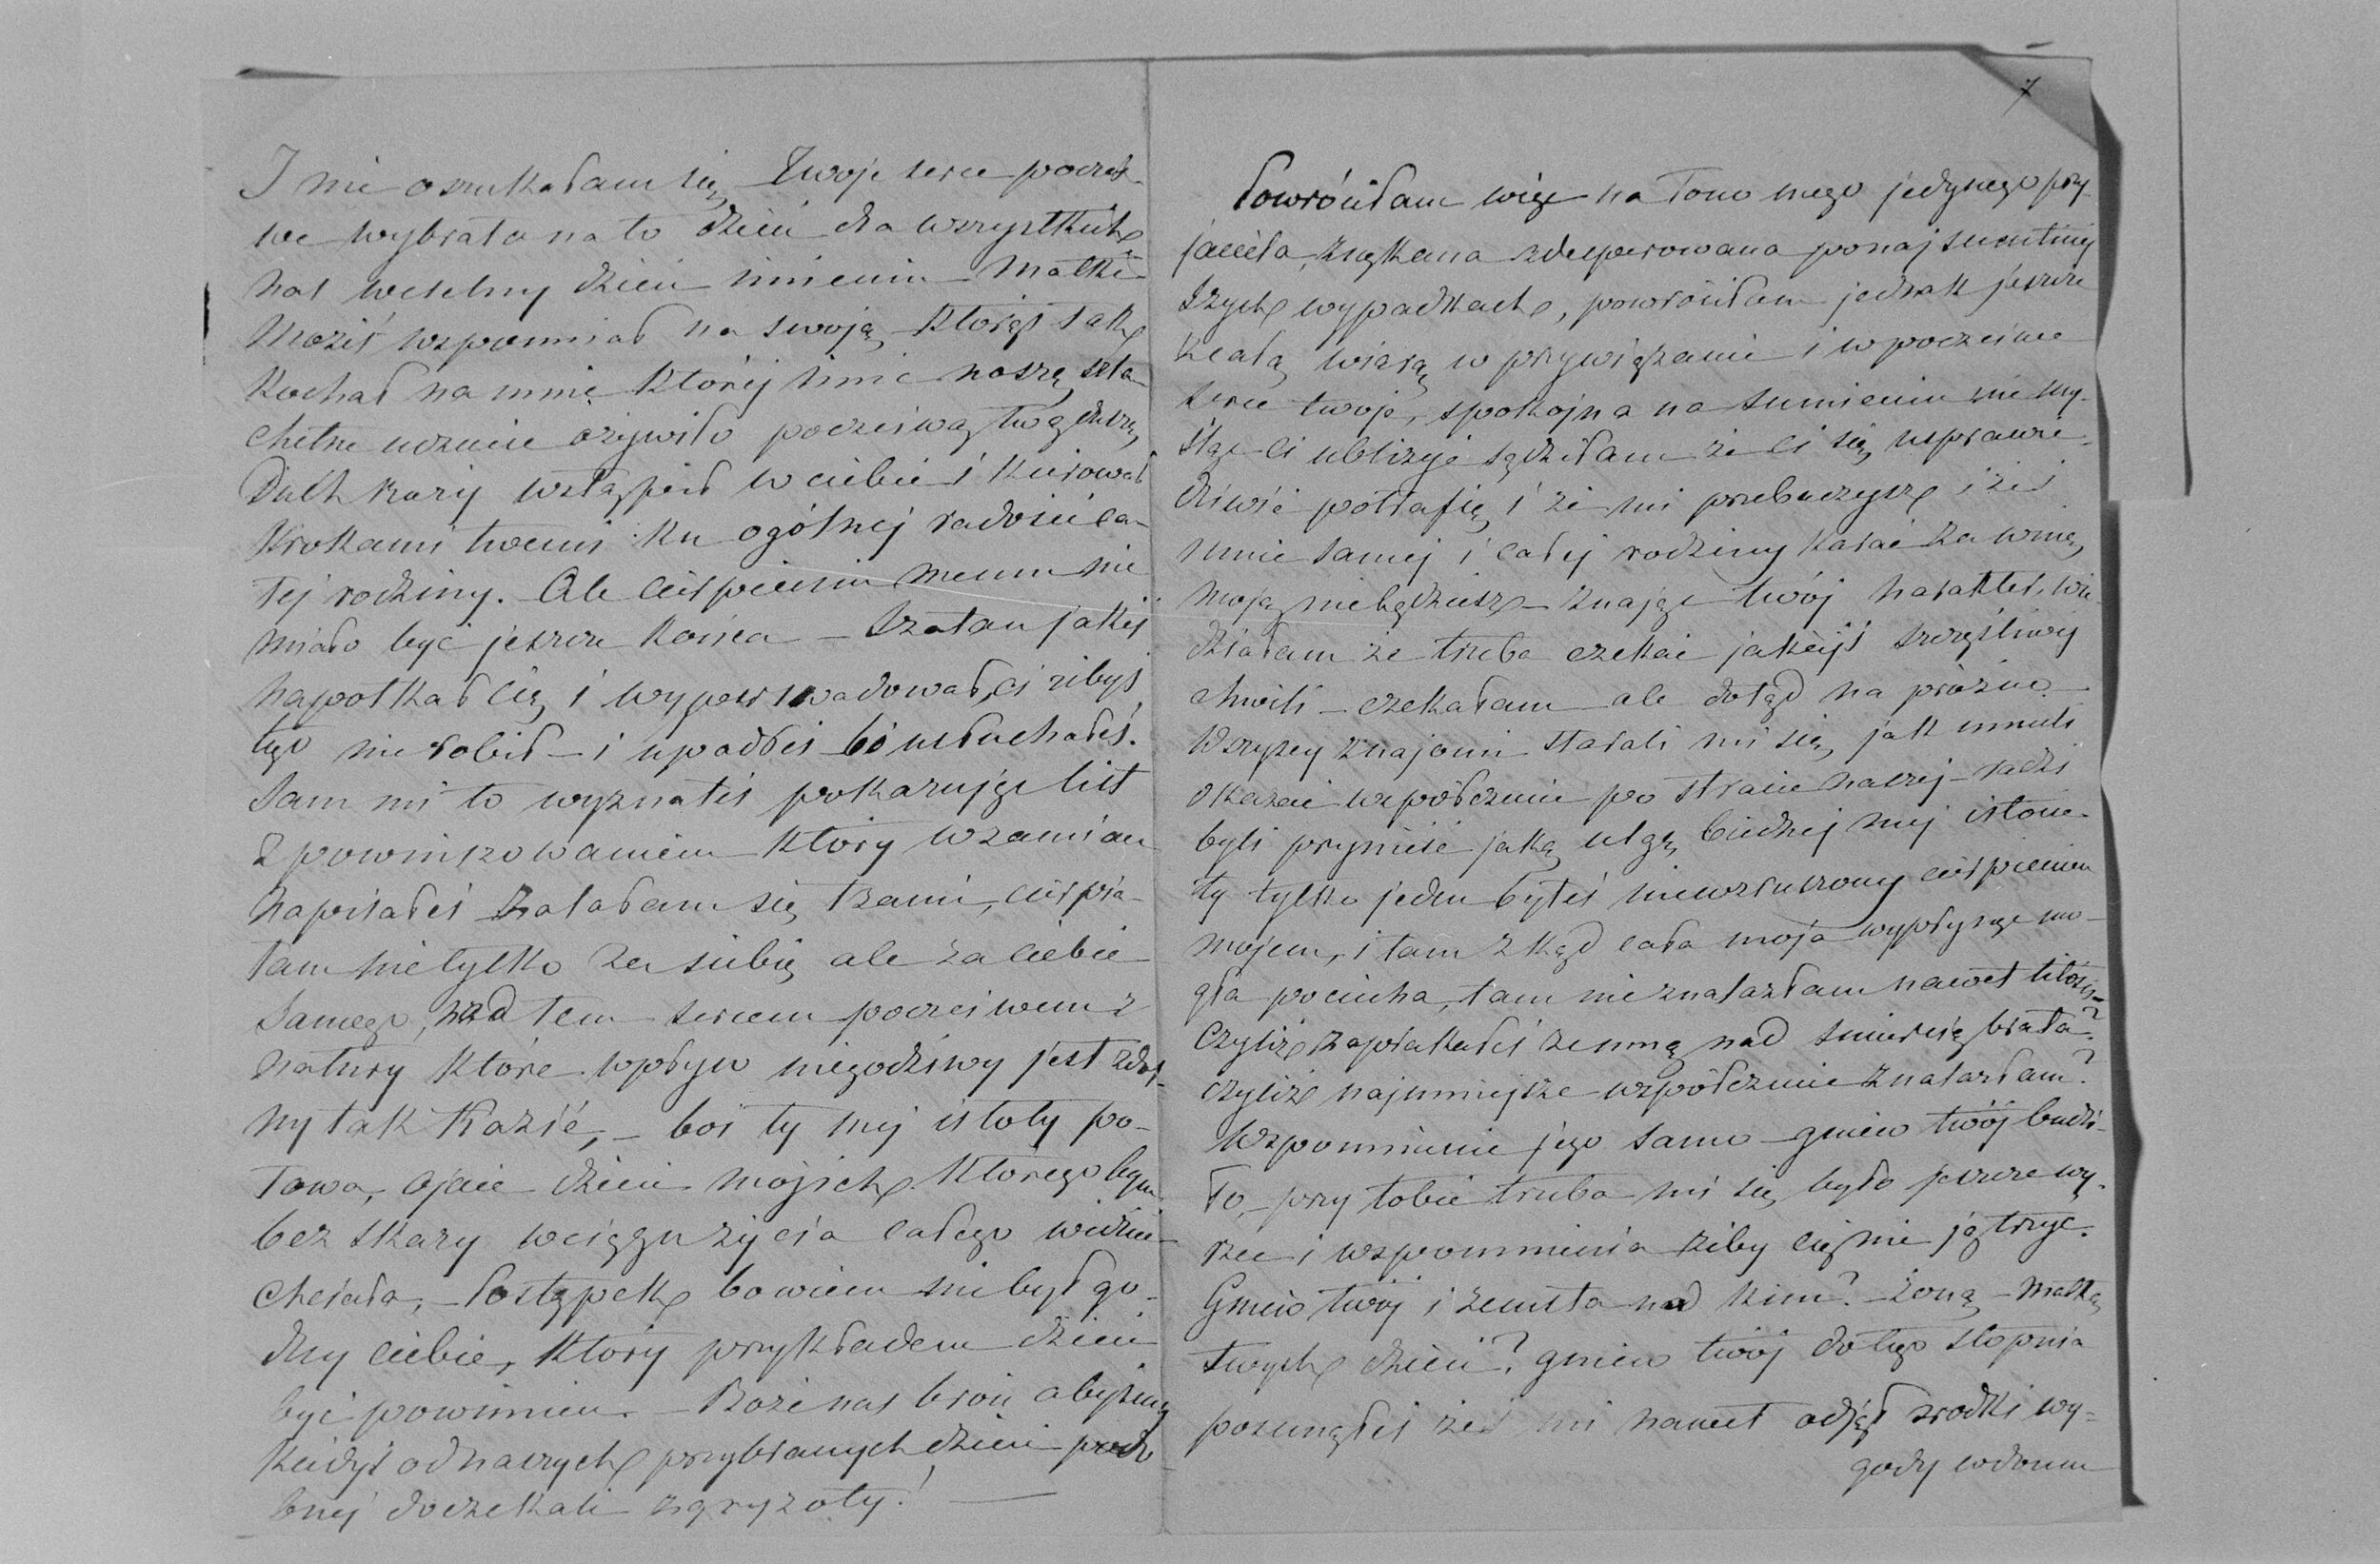 I nie oszukałam się Twoje serce poczci-
we wybrało na to dzień dla wszystkich
nas weselny dzień imienin Matki
Możeś wspomniał na swoją którąś tak
Kochał na mnie której imie noszę, szla-
chetne uczucie ożywiło poczciwą twą duszę
Duch Boży wstąpił w ciebie i Kierował
Krokami twemi ku ogólnej radości ca-
łej rodziny. Ale cierpieniu memu nie
miało być jeszcze Końca – Szatan jakiś
napotkał cię i wyperswadował ci żebyś
tego nie robił – i upadłeś bo usłuchałeś.
Sam mi to wyznałeś pokazując list
z powinszowaniem który wzamian
napisałeś Zalałam się łzami, cierpia-
łam nie tylko za siebie ale za ciebie
samego, nad tem sercem poczciwem z
natury które wpływ niegodziwy jest zdol-
ny tak Kazić, – boś ty mej istoty po-
łowa, ojcie dzieci mojich Którego bym
bez skazy wciągu życia całego widzieć
chciała, – Postępek bowiem nie był go-
dny ciebie, Który przykładem dzieci
być powinien. – Boże nas broń abyśmy
Kiedyś od naszych przybranych dzieci podo
bnej doczekali zgryzoty! —

7
Powróciłam więc na łono mego jedynego przy-
jaciela, znękana zdesperowana po najsmutniej
szych wypadkach, powróciłam jednak jeszcze
z całą wiarą w przywiązanie i w poczciwe
serce twoje, spokojna na sumieniu nie my-
śląc ci ubliżyć sądziłam że ci się usprawie-
dliwić potrafię i że mi przebaczysz i żeś
mnie samej i całej rodziny Karać za winę
moją nie będziesz – znając twój harakter, wie
działam że trzeba czekać jakiejś szczęśliwej
chwili – czekałam ale dotąd na próżno. –
Wszyscy znajomi starali mi się, jak umieli
okazać współczucie po stracie naszej – radzi
byli przynieść jaką ulgę biednej mej istocie.
ty tylko jeden byłeś niewzruszony cierpieniem
mojem, i tam zkąd cała moja wypłynąć mo-
gła pociecha, tam nie znalazłam nawet litości –
Czyliż zapłakałeś zemną nad śmiercią brata?
czyliż najmniejsze współczucie znalazłam?
Wspomnienie jego samo gniew twój budzi-
ło, – przy tobie trzeba mi się było jeszcze wy-
rzec i wspomnienia żeby cię nie jątrzyć.
Gniew twój i zemsta nad kim? – Żoną – Matką
twych dzieci? gniew twój do tego stopnia
posunąłeś żeś mi nawet odjął środki wy-
gody w domu